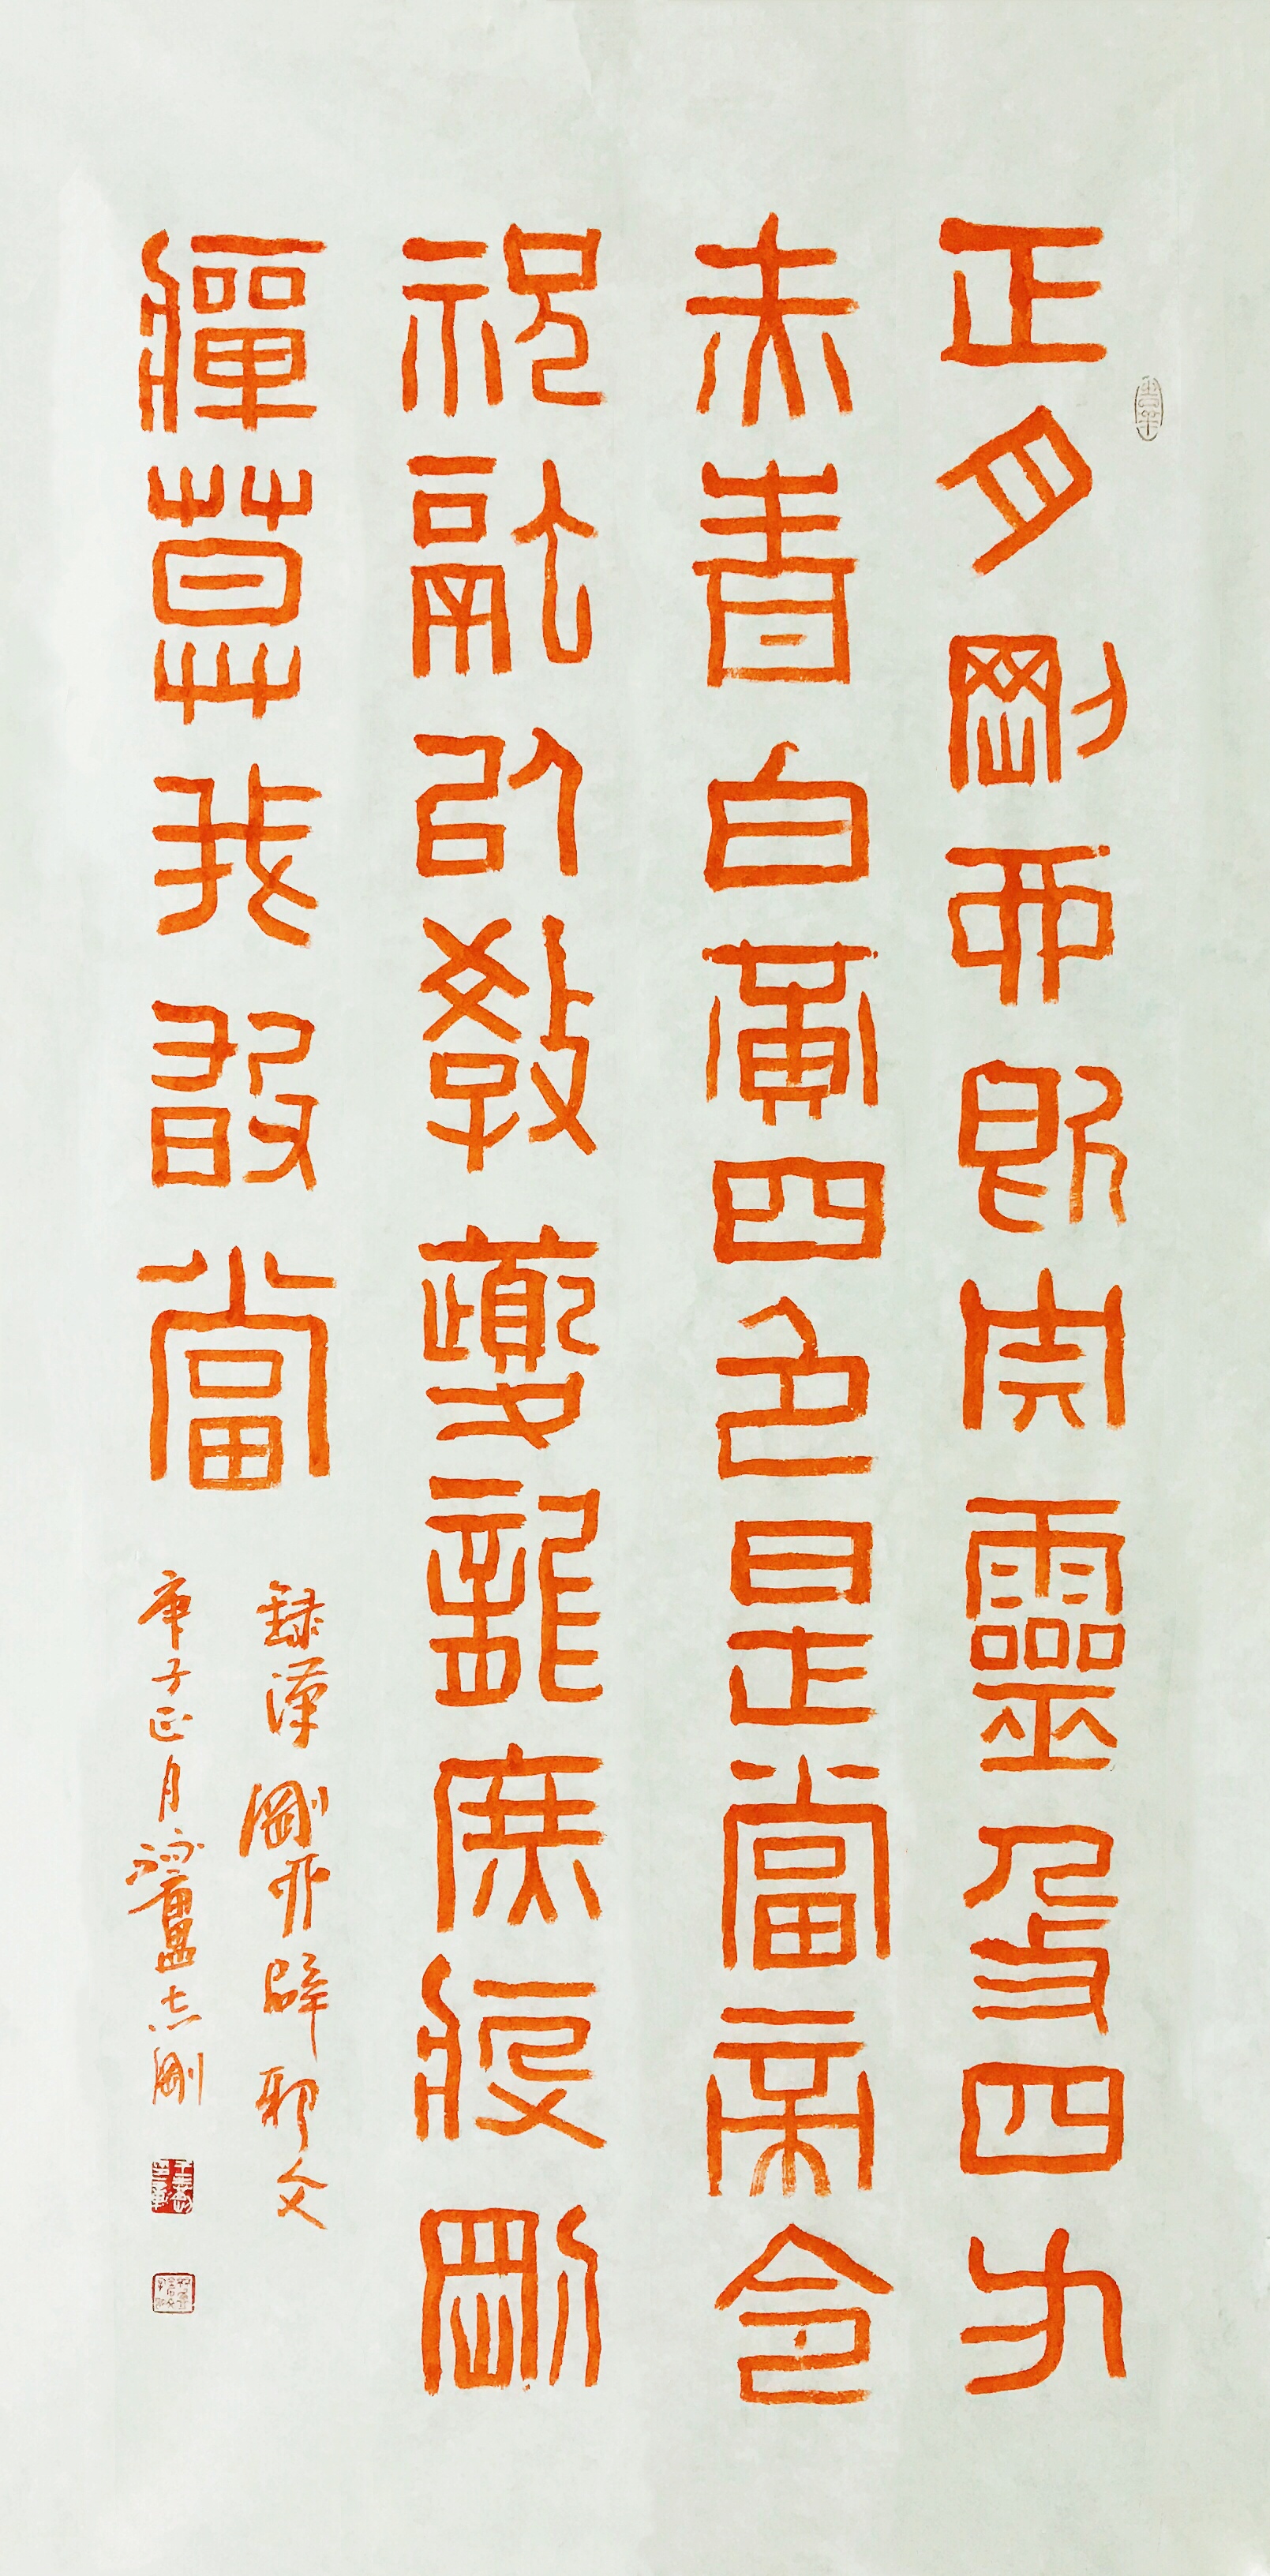 正月剛卯既央靈殳四方
赤青白黃四色是當帝令
祝融以教夔龍庶疫剛
癉莫我敢當
錄漢剛卯辟邪文
庚子正月志剛